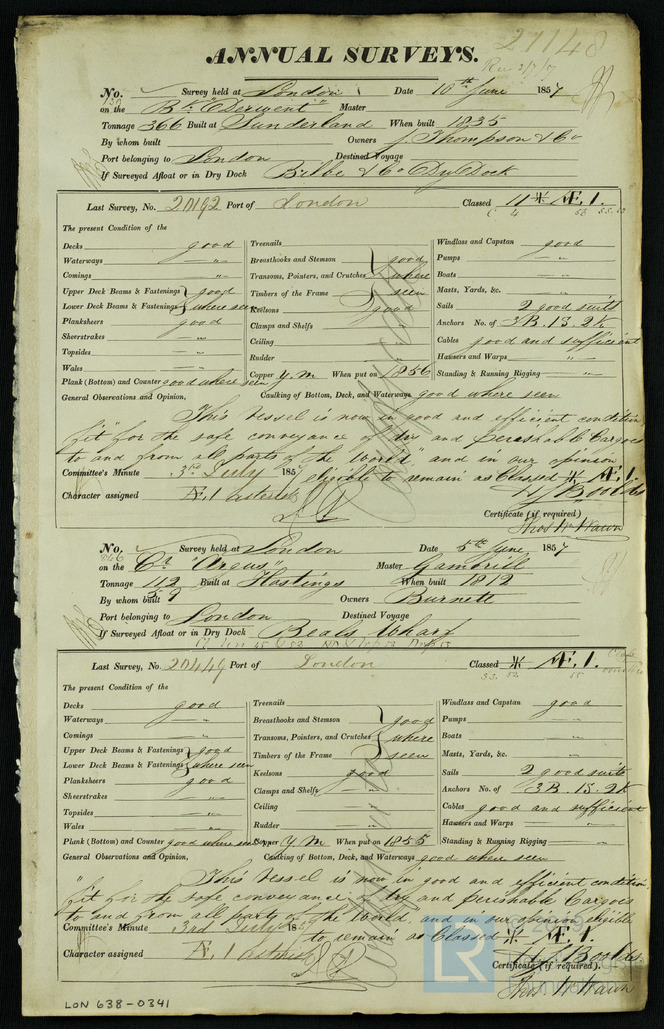 27148
ANNUAL SURVEYS.
Rec 3/7/57
No. 139 Survey held at London Date 16th June 1857
on the Bk "Derwent" Master
Tonnage 366 Built at Sunderland When built 1835
By whom built Owners J. Thompson & Co
Port belonging to London Destined Voyage
If Surveyed Afloat or in Dry Dock Bilbe & Co Dry Dock
Last Survey, No. 20192 Port of London Classed 11 Æ. 1.
The present Condition of the
Decks good Treenails Windlass and Capstan good
Waterways —„— Breasthooks and Stemson good Pumps —„—
Comings —„— Transoms, Pointers, and Crutches where Boats —„—
Upper Deck Beams & Fastenings good Timbers of the Frame seen Masts, Yards, &c. —„—
Lower Deck Beams & Fastenings where seen Keelsons good Sails 2 good suits
Planksheers good Clamps and Shelfs —„— Anchors No. of 3B. 1S. 2K
Sheerstrakes —„— Ceiling —„— Cables good and sufficient
Topsides —„— Rudder —„— Hawsers and Warps —„—
Wales —„— Copper Y.M When put on 1856 Standing & Running Rigging —„—
Plank (Bottom) and Counter good where seen
General Observations and Opinion, Caulking of Bottom, Deck, and Waterways good where seen
This Vessel is now in good and efficient condition
"fit" for the safe conveyance of dry and perishable Cargoes
to and from all parts of the World" and in our opinion
Committee's Minute 3rd July 1857 eligible to remain as Classed Æ. 1.
Character assigned Æ. 1 H. J. Boolds
Certificate (if required)
Thos W Wawn
No. 246 Survey held at London Date 5th June 1857
on the Cr "Argus" Master Gambrill
Tonnage 112 Built at Hastings When built 1812
By whom built Owners Burnett
Port belonging to London Destined Voyage
If Surveyed Afloat or in Dry Dock Beals Wharf
Last Survey, No. 20449 Port of London Classed Æ. 1.
The present Condition of the
Decks good Treenails Windlass and Capstan good
Waterways —„— Breasthooks and Stemson good Pumps —„—
Comings —„— Transoms, Pointers, and Crutches where Boats —„—
Upper Deck Beams & Fastenings good Timbers of the Frame seen Masts, Yards, &c. —„—
Lower Deck Beams & Fastenings where seen Keelsons good Sails 2 good suits
Planksheers good Clamps and Shelfs —„— Anchors No. of 3B. 1S. 2K
Sheerstrakes —„— Ceiling —„— Cables good and sufficient
Topsides —„— Rudder —„— Hawsers and Warps —„—
Wales —„— Copper Y M When put on 1855 Standing & Running Rigging —„—
Plank (Bottom) and Counter good where seen
General Observations and Opinion, Caulking of Bottom, Deck, and Waterways good where seen
This Vessel is now in good and efficient condition,
"fit" for the safe conveyance of dry and perishable Cargoes
to and from all parts of the World, and in our opinion eligible
Committee's Minute 3rd July 185 to remain as Classed Æ. 1.
Character assigned Æ. 1 H. J. Boolds.
Certificate (if required).
Thos W Wawn
LON 638-0341
LR